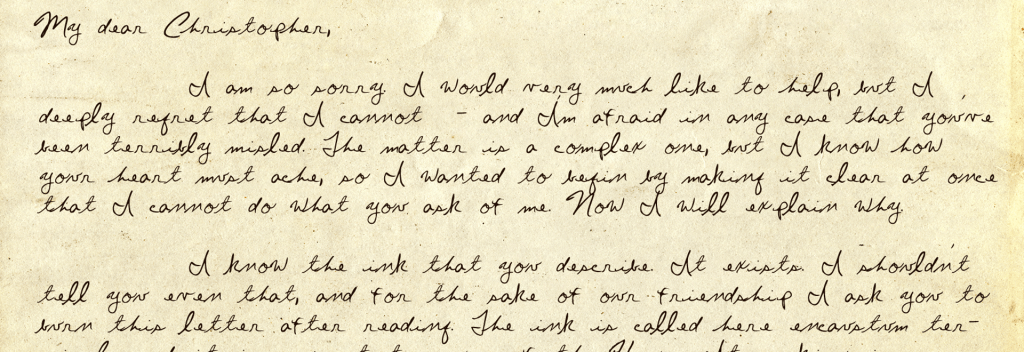 My dear Christopher,
I am so sorry. I would very much like to help, but I
deeply regret that I cannot - and I'm afraid in any case that you've
been terribly misled. The matter is a complex one, but I know how
your heart must ache, so I wanted to begin by making it clear at once
that I cannot do what you ask of me. Now I will explain why.
I know the ink that you describe. It exists. I shouldn't
tell you even that, and for the sake of our friendship I ask you to
burn this letter after reading. The ink is called here encaustum ter-